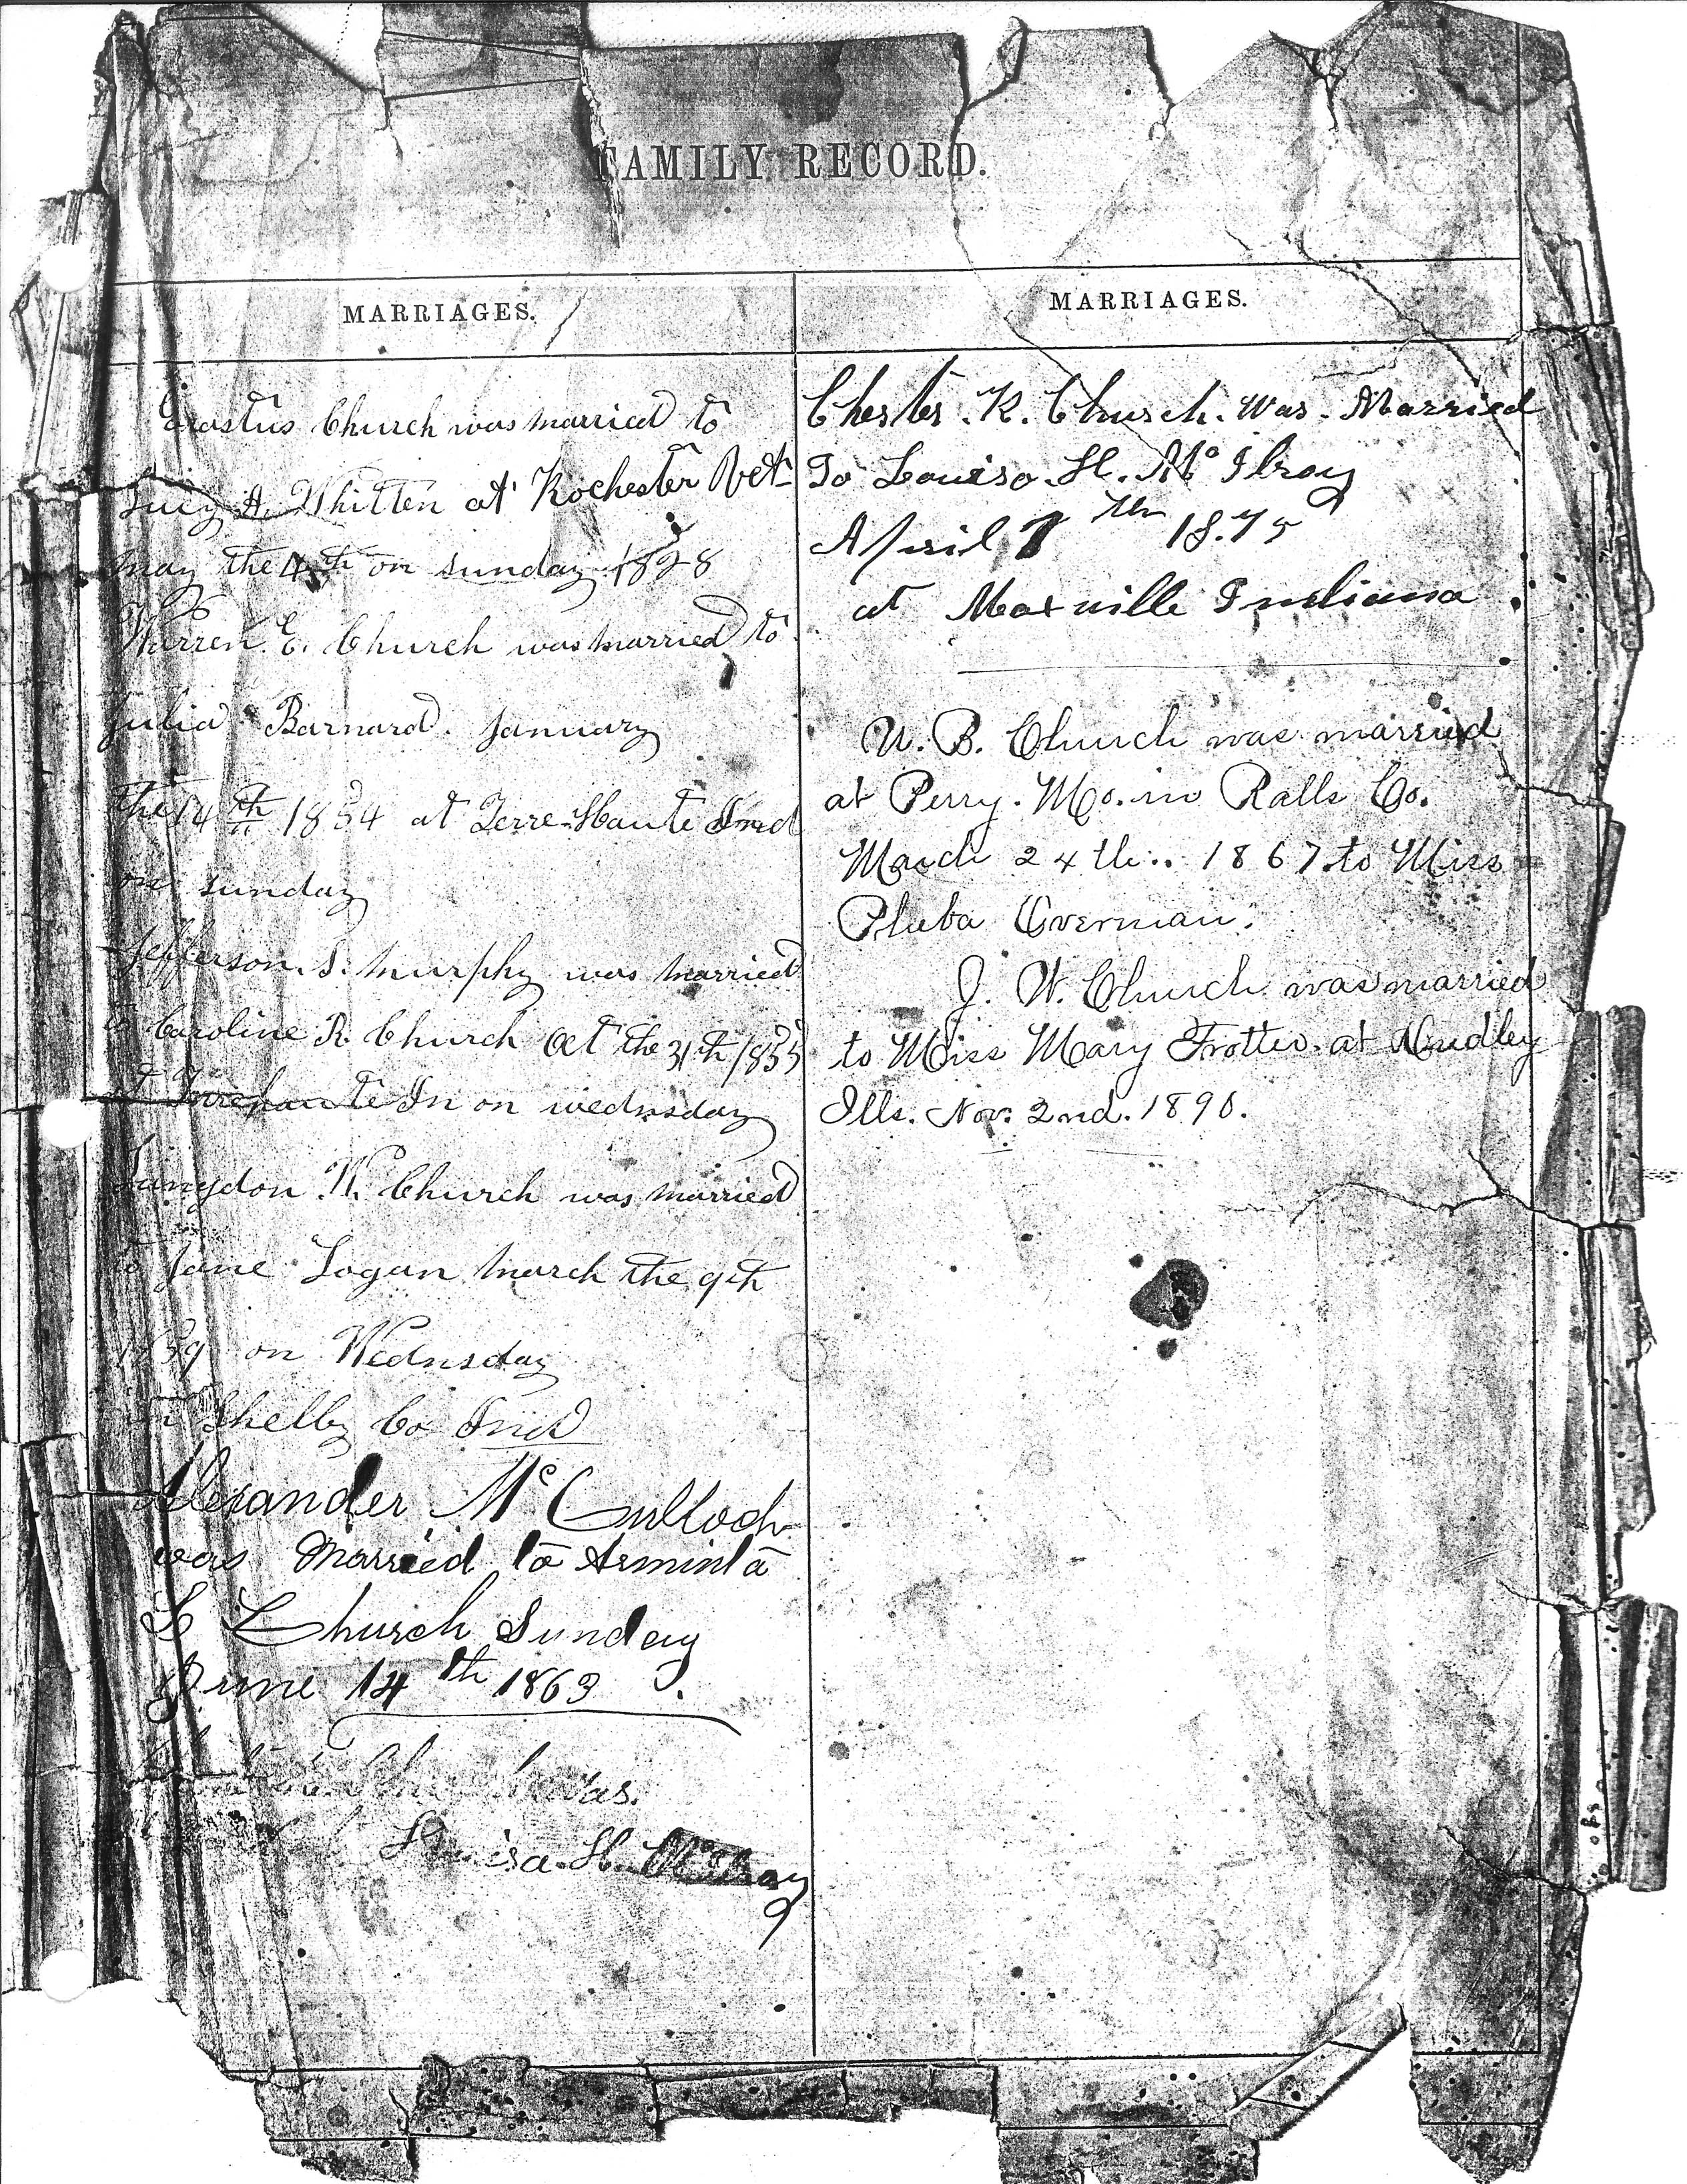 FAMILY RECORD.
MARRIAGES.
Erastus Church was married to
Lucy A. Whitten at Rochester Vet
may the 4th on sunday 1828
Warren E. Church was married to
Julia Barnard. January
the 14th 1854 at Terre-Haute Ind
on sunday
Jefferson. S. Murphy was married
to Caroline R. Church Oct the 31th 1855
at Terrehaute In on wednsday
Langdon W. Church was married
to Jane Logan March the 9th
1859 on Wednsday
in Shelby Co Ind
Alexander Mc Culloch
was Married to Arminta
L Church Sunday
June 14th 1863.
was.
Louisa. H. McIlroy
MARRIAGES.
Chester. K. Church. Was. Married
To Louisa. H. Mc Ilroy
April 7th 18.75
at Maxville Indiana
U. B. Church was married
at Perry. Mo. in Ralls Co.
March 24th.. 1867. to Miss
Pheba Overman.
J. W. Church was married
to Miss Mary Trotter. at
Ills. Nov. 2nd. 1890.